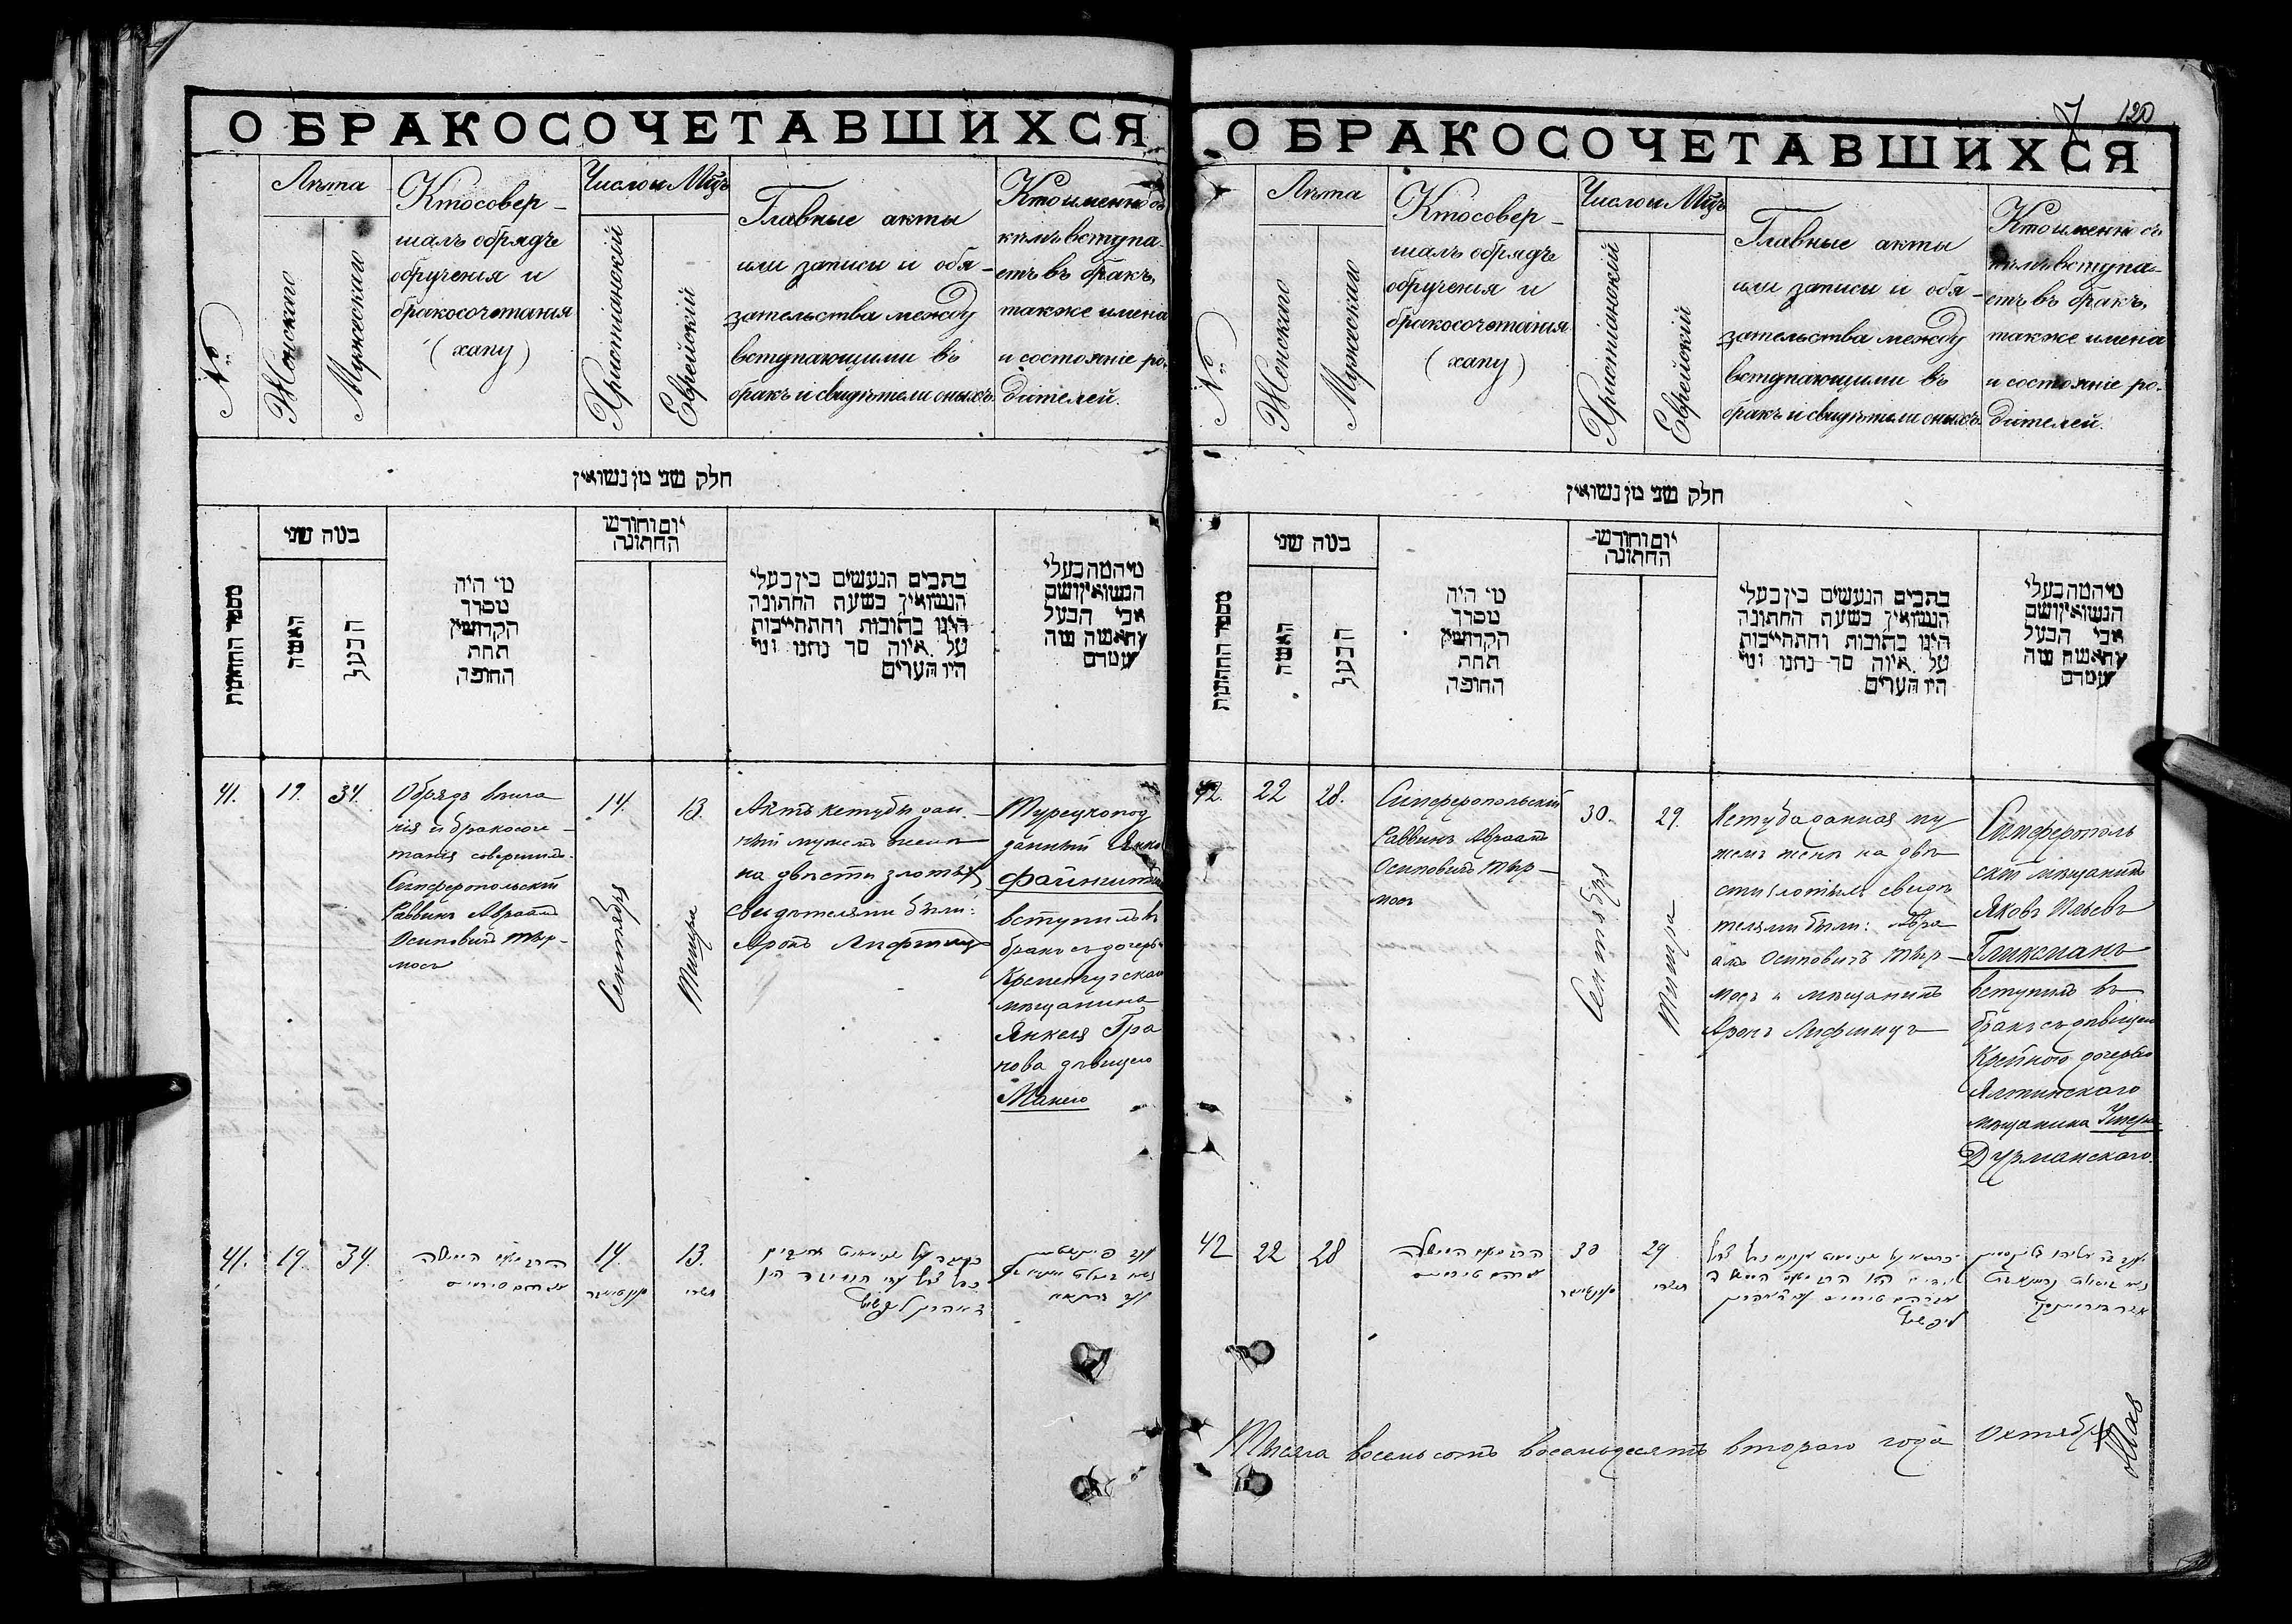 О БРАКОСОЧЕТАВШИХСЯ
№
Лѣта
Женскаго
Мужескаго
Кто совер-
шалъ обрядъ
обрученія и
бракосочетанія
(хапу)
Число и Мѣцъ
Христіанскій
Еврейскій
Главные акты
или записи и обя-
зательства между
вступающими въ
бракъ и свидѣтели оныхъ.
Кто именно съ
кѣмъ вступа-
етъ въ бракъ,
также имена
и состояніе ро-
дителей.
חלק שני מן נשואין
מספר החתונות
במה שני
האשה
הבעל
מי היה
מסדר
הקדושין
תחת
החופה
יום וחודש
החתונה
כתבים הנעשים בין בעלי
הנשואין בשעת החתונה
היינו כתובות והתחייבות
על איזה סך נתנו ומי
היו העדים
מי המה בעלי
הנשואין ושם
אבי הבעל
והאשה מה
מעמדם
41.
19.
34.
Обрядъ внѣча
нія и бракосоче-
танія совершилъ
Симферопольскій
Раввинъ Авраамъ
Осиповичъ Тыр-
мосъ
14.
Сентября
13.
Тишри
Актъ кетубы дан-
ный мужемъ женѣ
на двѣсти злотыхъ
свидѣтелями были:
Аронъ Лифшицъ
Турецкопод
данный Янкель
вступилъ въ
бракъ съ дочерью
Кременчугскаго
мѣщанина
Янкеля Гра
нова дѣвицею
Манею
41.
19.
34.
14.
13.
תשרי
О БРАКОСОЧЕТАВШИХСЯ
120
№
Лѣта
Женскаго
Мужескаго
Кто совер-
шалъ обрядъ
обрученія и
бракосочетанія
(хапу)
Число и Мѣцъ
Христіанскій
Еврейскій
Главные акты
или записи и обя-
зательства между
вступающими въ
бракъ и свидѣтели оныхъ.
Кто именно съ
кѣмъ вступа-
етъ въ бракъ,
также имена
и состояніе ро-
дителей.
חלק שני מן נשואין
מספר החתונות
במה שני
האשה
הבעל
מי היה
מסדר
הקדושין
תחת
החופה
יום וחודש
החתונה
כתבים הנעשים בין בעלי
הנשואין בשעת החתונה
היינו כתובות והתחייבות
על איזה סך נתנו ומי
היו העדים
מי המה בעלי
הנשואין ושם
אבי הבעל
והאשה מה
מעמדם
42.
22
28.
Симферопольскій
Раввинъ Авраамъ
Осиповичъ Тыр-
мосъ
30.
Сентября
29.
Тишри
Кетуба данная му
жемъ женѣ на двѣ
сти злотыхъ свидѣ
телями были: Авра
амъ Осиповичъ Тыр-
мосъ и мѣщанинъ
Аронъ Лифшицъ
Симферополь
скій мѣщанинъ
Яковъ Ильевъ
Гликсманъ
вступилъ въ
бракъ съ дѣвицею
Крейною дочерью
Ялтинскаго
мѣщанина
Дурманскаго.
42
22
28
30
29
תשרי
Тысяча восемьсотъ восемьдесятъ второго года Октября